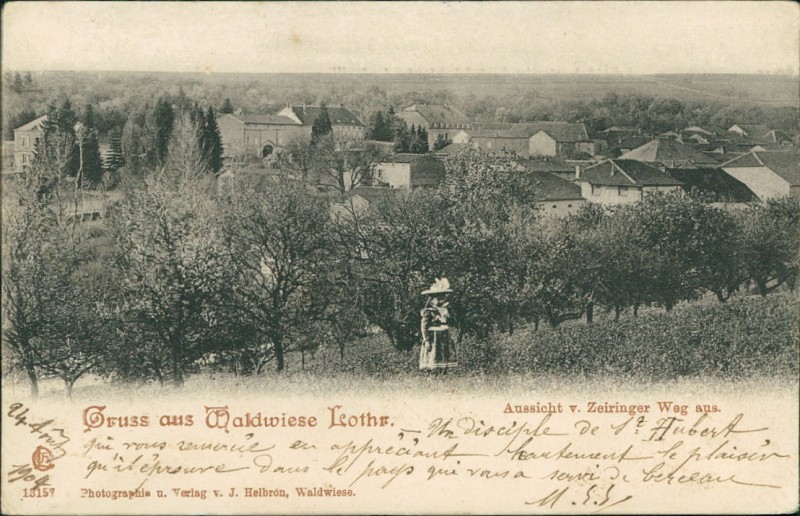 Gruss aus Waldwiese Lothr.
Aussicht v. Zeiringer Weg aus.
24 Août
1904
- Un disciple de St Hubert
qui vous remercie en appréciant hautement le plaisir
qu'il éprouve dans le pays qui vous a servi de berceau
13157 Photographie u. Verlag v. J. Helbrón, Waldwiese.